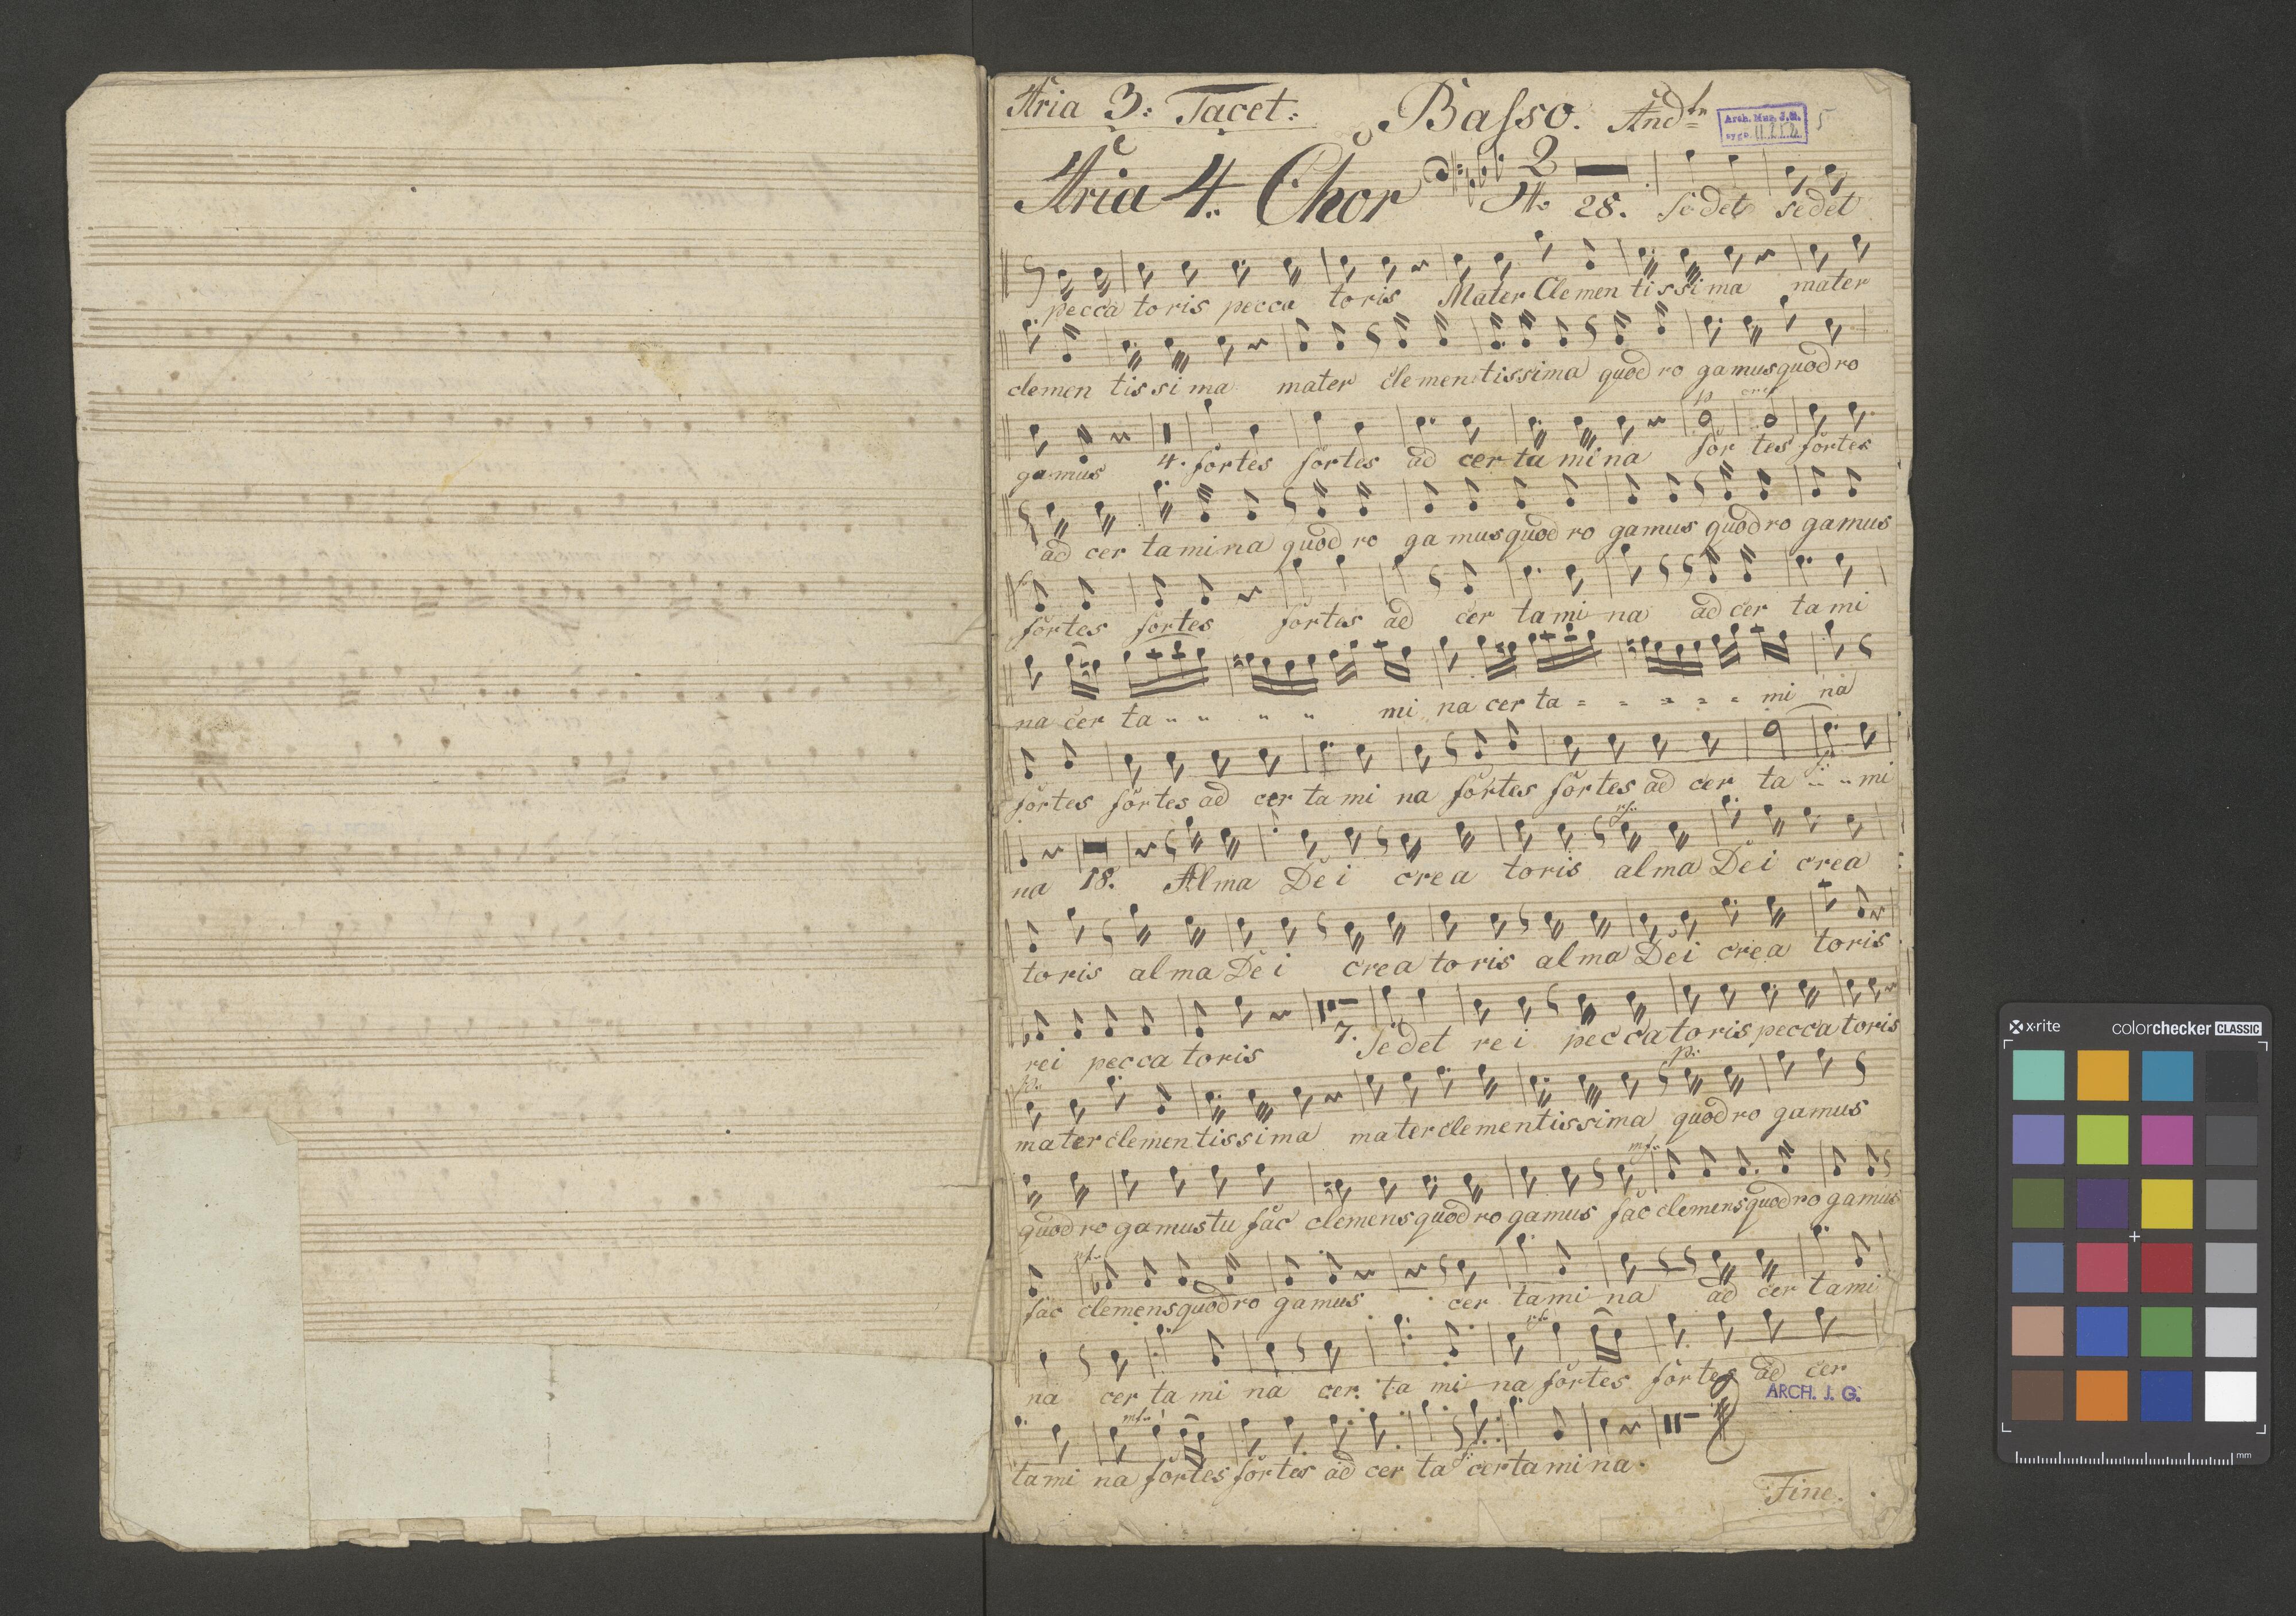 Aria 3: Tacet: Basso. Andte
Arch. Mus. J.G.
sygn. 5
Aria 4. Chor 2 4. 28. sedet sedet
pecca toris pecca toris Mater Clemen tissima mater
clemen tissima mater clementissima quod ro gamus quod ro
fo cres
gamus 4. fortes fortes ad certamina for tes fortes
ad cer tamina quod ro gamus quod ro gamus quod ro gamus
fo
fortes fortes fortes ad cer tamina ad cer tami
na cer ta " " " " mi na cer ta = = = = = mi na
fortes fortes ad cer tami na fortes fortes ad cer ta " " mi
rf.
na 18. Alma Dei crea toris alma Dei crea
toris alma Dei creatoris alma Dei crea toris
rei pecca toris 7. Sedet rei peccatoris peccatoris
p. p.
mater clementissima mater clementissima quod ro gamus
mf.
quod ro gamus tu fac clemens quod ro gamus fac clemens quod ro gamus
rf.
fac clemens quod ro gamus cer tami na ad cer tami
rf.
na cer tami na cer ta mi na fortes fortes ad cer
ARCH. J. G.
mf.
tami na fortes fortes ad cer ta certamina.
Fine.
x-rite colorchecker CLASSIC
mm